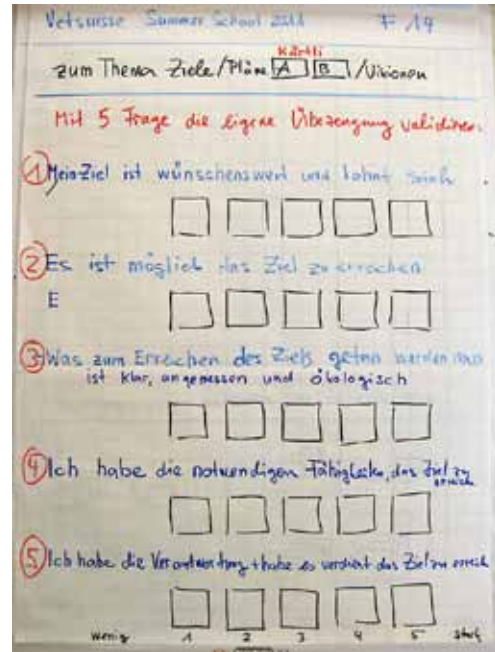 Vetsuisse Summer School 2011 F 19
Kärtli
zum Thema Ziele/Pläne A B /Visionen
Mit 5 Frage die eigene Überzeugung validieren.
1 Mein Ziel ist wünschenswert und lohnt sich
2 Es ist möglich das Ziel zu erreichen
E
3 Was zum Erreichen des Ziels getan werden muss
ist klar, angemessen und ökologisch
4 Ich habe die notwendigen Fähigkeiten, das Ziel zu
erreich
5 Ich habe die Verantwortung + habe es verdient das Ziel zu erreich
wenig 1 2 3 4 5 stark